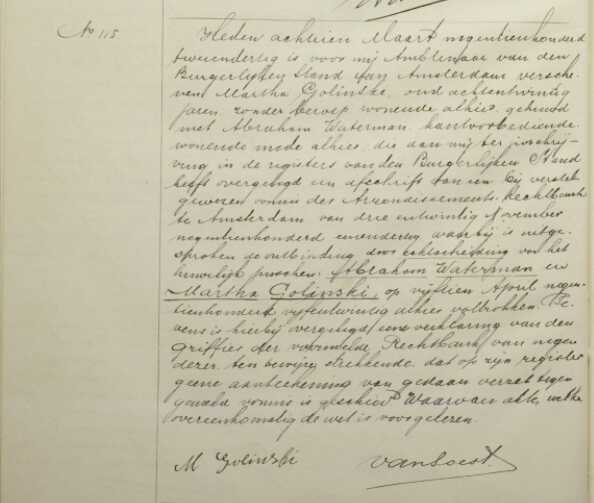 No 115
Heden achttien Maart negentienhonderd
tweeendertig is voor mij Ambtenaar van den
Burgerlijken Stand van Amsterdam versche-
nen Martha Golinski, oud achtentwintig
jaren, zonder beroep, wonende alhier, gehuwd
met Abraham Waterman, kantoorbediende,
wonende mede alhier, die aan mij ter inschrij-
ving in de registers van den Burgerlijken Stand
heeft overgelegd een afschrift van een bij verstek
gewezen vonnis der Arrondissements-Rechtbank
te Amsterdam van drie entwintig November
negentienhonderd eenendertig waarbij is uitge-
sproken de ontbinding door echtscheiding van het
huwelijk tusschen: Abraham Waterman en
Martha Golinski, op vijftien April negen-
tienhonderd vijfentwintig alhier voltrokken. Te-
vens is hierbij overgelegd eene verklaring van den
Griffier der voormelde Rechtbank van
ten bewijze strekkende, dat op zijn register
geene aanteekening van gedaan verzet tegen
gemeld vonnis is geschied. Waarvan akte, welke
overeenkomstig de wet is voorgelezen.
M Golinski
van Soest.